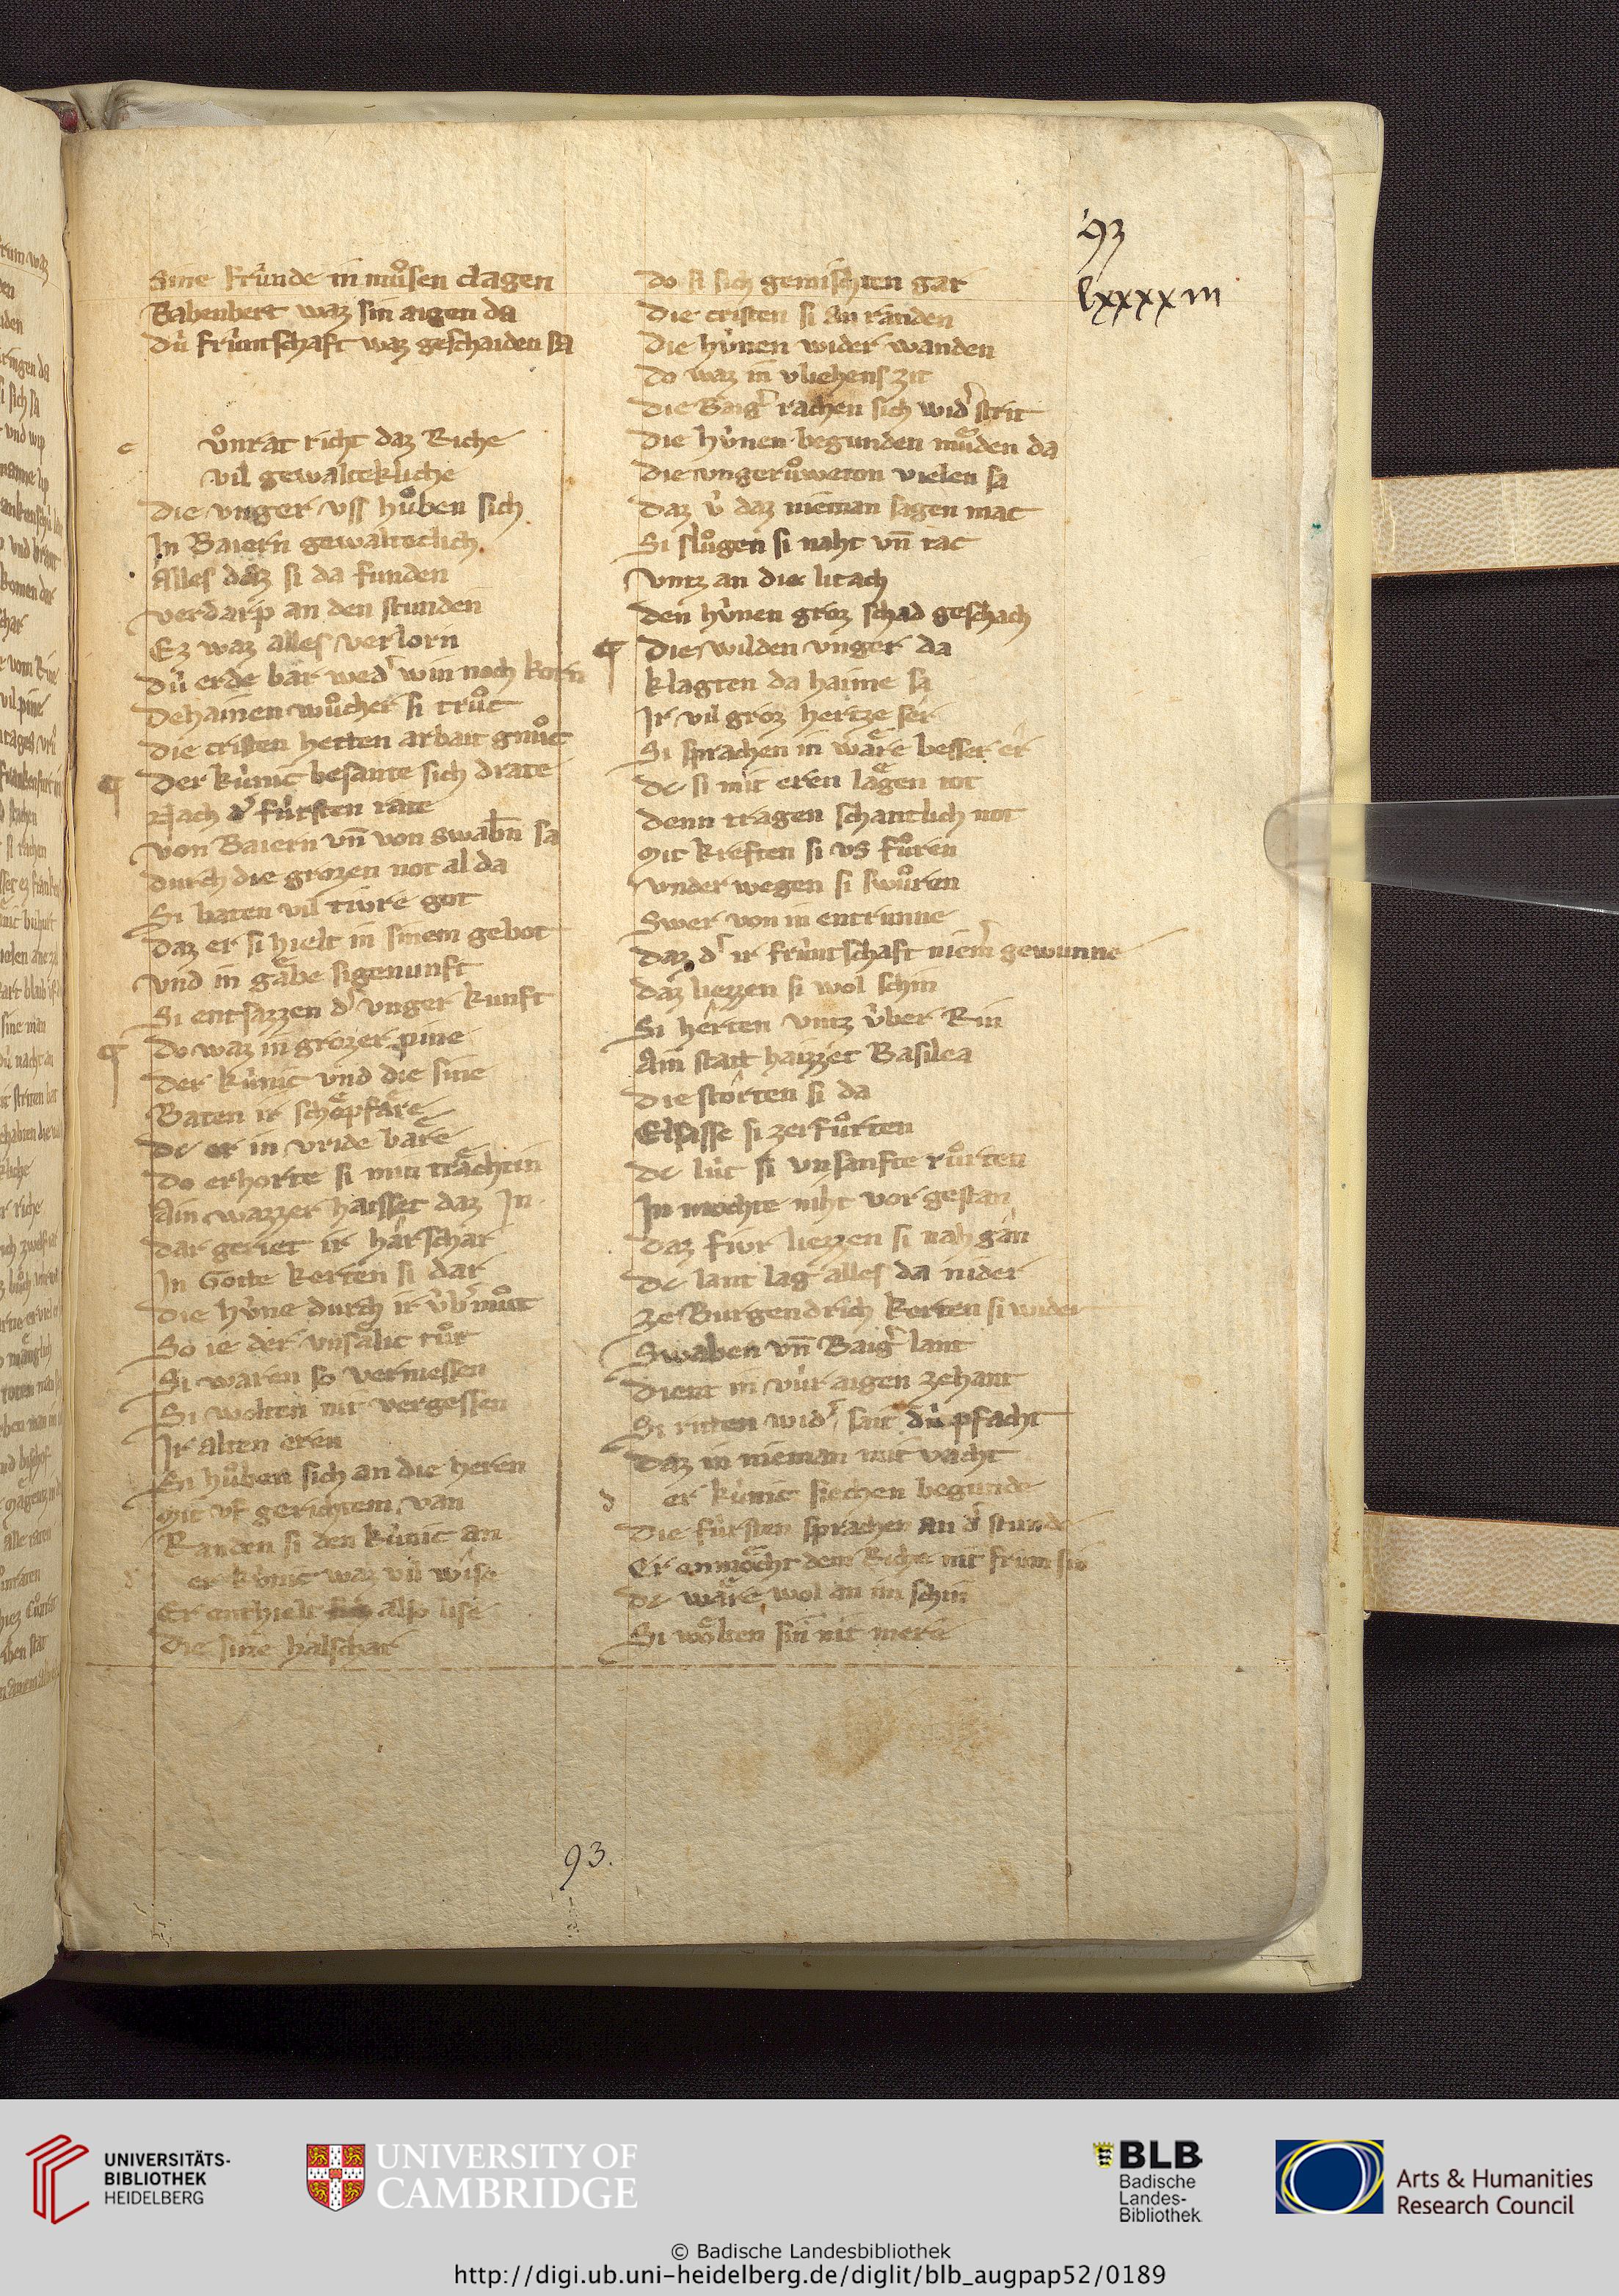 93
lxxxxiii
Sine fründe in muͦsen clagen
Babenbert waz sin aigen da
Dú frúntschaft waz geschaiden sa
c uͦnrat richt daz Riche
vil gewaltekliche
Die vnger vss huͦben sich
In Baiern gewalteclich
Alles daz si da funden
verdarp an den stunden
Ez waz alles verlorn
Dú erde bar wed' win noch korn
Dehainen wuͦcher si truͦc
die cristen hetten arbait gnuͦc
¶ Der kúnic besante sich drate
Nach d' fúrsten rate
von Baiern vn̄ von swabn̄ sa
durch die grozen not al da
Si baten vil tivre got
daz er si hielt in sinem gebot
vnd in gaͤbe sigenunft
Si entsazzen d' vnger kunft
¶ Do waz in grozer pine
der kúnic vnd die sine
Baten ir schoͤpfaͤre
dc er in vride baͤre
do erhorte si min traͤchtin
Ain wazzer haisset daz In
dar geriet ir harschar
In Gotte kerten si dar
die húne durch ir úb'muͦt
So ie der vnsaͤlic tuͦt
Si waren so vermessen
Si wolten nit vergessen
Ir alten eren
Si huͦben sich an die heren
Mit vf gerichtem van
Randen si den kúnic an
d er kúnic waz vil wise
Er enthielt sich also lise
Die sine halschar
do si sich gemischten gar
Die cristen si an randen
Die húnen wider wanden
do waz in vliehens zit
die Baig' rachen sich wid' strit
die húnen begunden muͤden da
die vngeruͦweton vielen sa
daz ú daz nieman sagen mac
Si sluͦgen si naht vn̄ tac
vntz an die litach
den húnen groz schad geschach
¶ Die wilden vnger da
klagten da haime sa
Ir vil groz hertze ser
Si sprachen in waͤre besser er
dc si mit eren laͤgen tot
denn tragen schantlich not
Mit kreften si vs fuͦren
vnder wegen si swuͦren
Swer von in entrunne
daz d' ir frúntschaft niem' gewunne
daz liezzen si wol schin
Si herten vntz úber Rin
Ain statt haizzet Basilea
die storten si da
Elsasse si zerfuͦrten
dc lút si vnsanfte ruͦrten
In mochte niht vor gestan
daz fivr liezzen si nah gan
dc lant lag alles da nider
ze Burgendrich kerten si wider
Swaben vn̄ Baig' lant
dient in vúr aigen zehant
Si ritten wid' sait dú pfacht
daz in nieman nit vacht
d er kúnic siechen begunde
die fúrsten sprachen an d' stunde
Er enmoͤcht dem Riche nit frum sin
dc waͤre wol an im schin
Si woͤlten sin nit mere
93.
UNIVERSITÄTS-
BIBLIOTHEK
HEIDELBERG
UNIVERSITY OF
CAMBRIDGE
BLB
Badische
Landes-
Bibliothek
Arts & Humanities
Research Council
© Badische Landesbibliothek
http://digi.ub.uni-heidelberg.de/diglit/blb_augpap52/0189